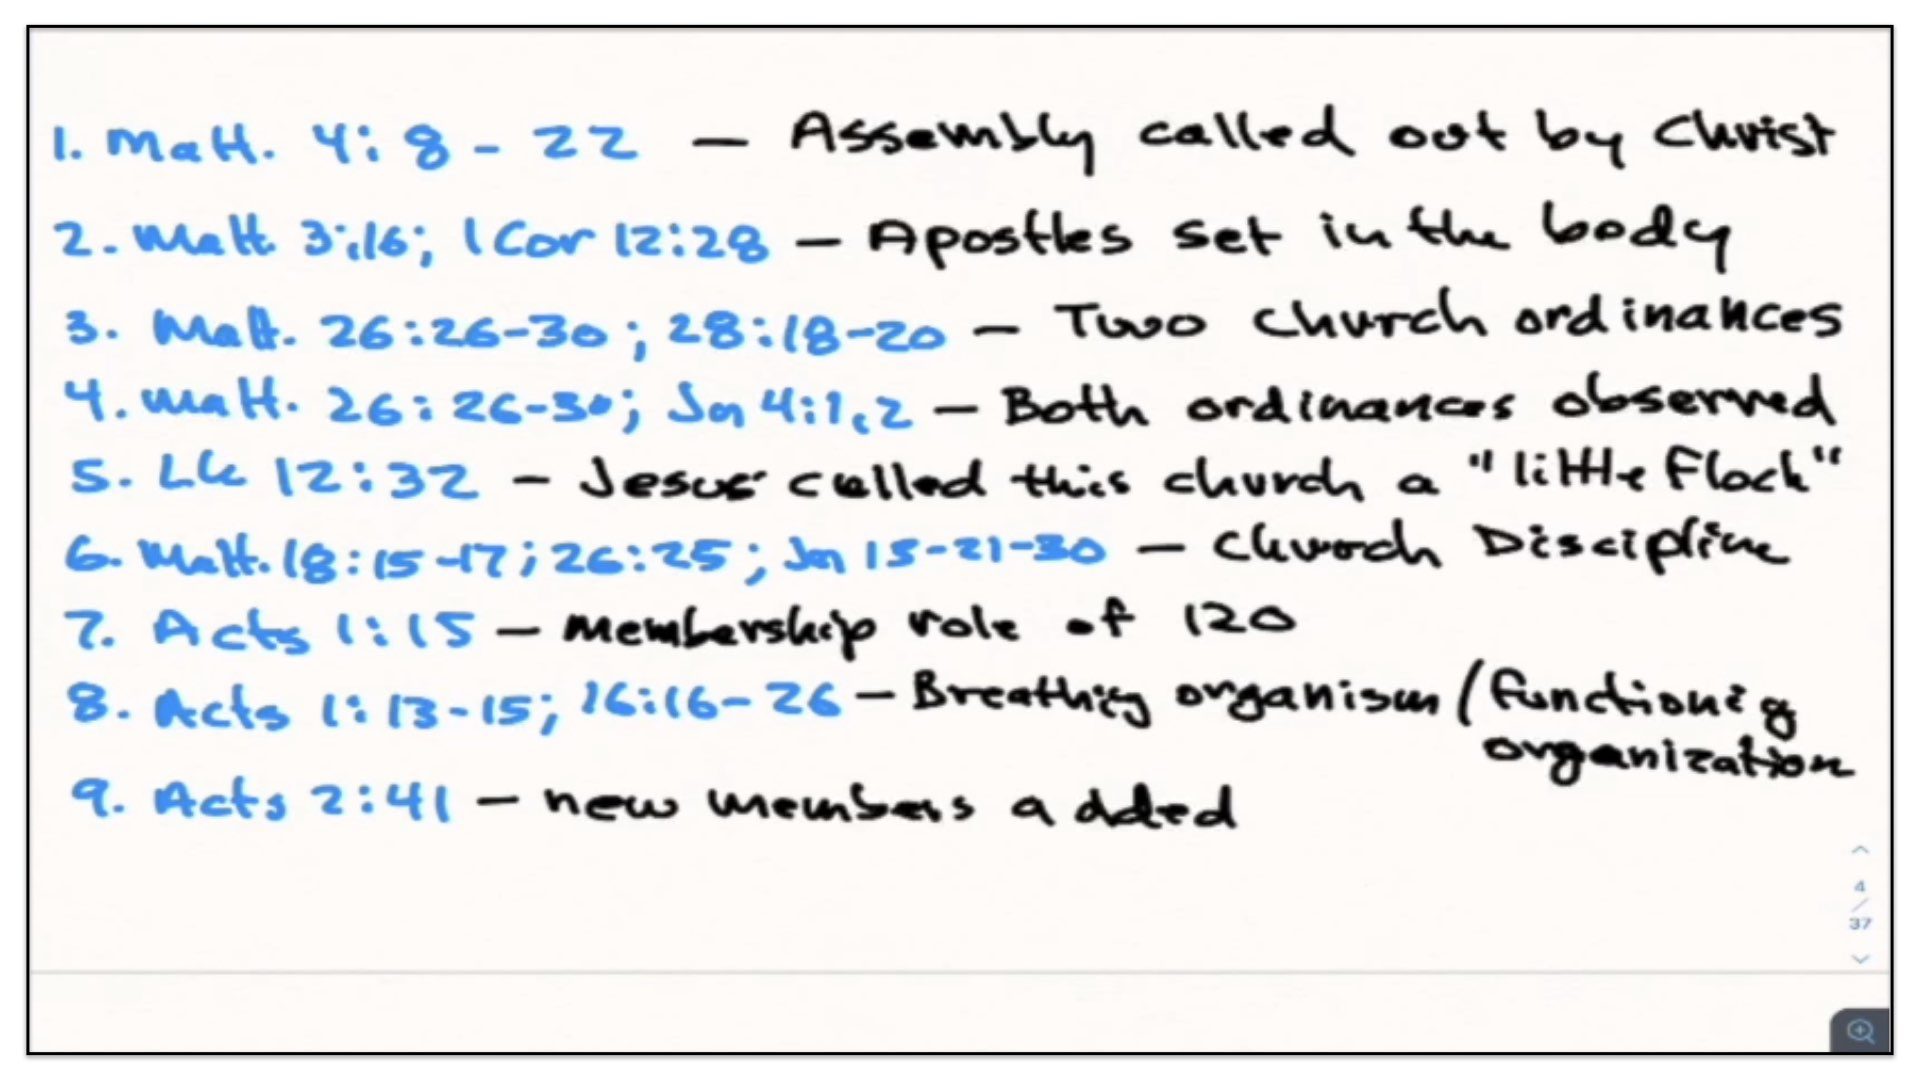 1. Matt. 4:8-22 — Assembly called out by Christ
2. Matt 3:16; 1 Cor 12:28 — Apostles set in the body
3. Matt. 26:26-30; 28:18-20 — Two church ordinances
4. Matt. 26:26-30; Jn 4:1,2 — Both ordinances observed
5. Lk 12:32 — Jesus called this church a "little flock"
6. Matt. 18:15-17; 26:25; Jn 13-21-30 — Church Discipline
7. Acts 1:15 — membership role of 120
8. Acts 1:13-15; 16:16-26 — Breathing organism/functioning
organization
9. Acts 2:41 — new members added
4
/
37